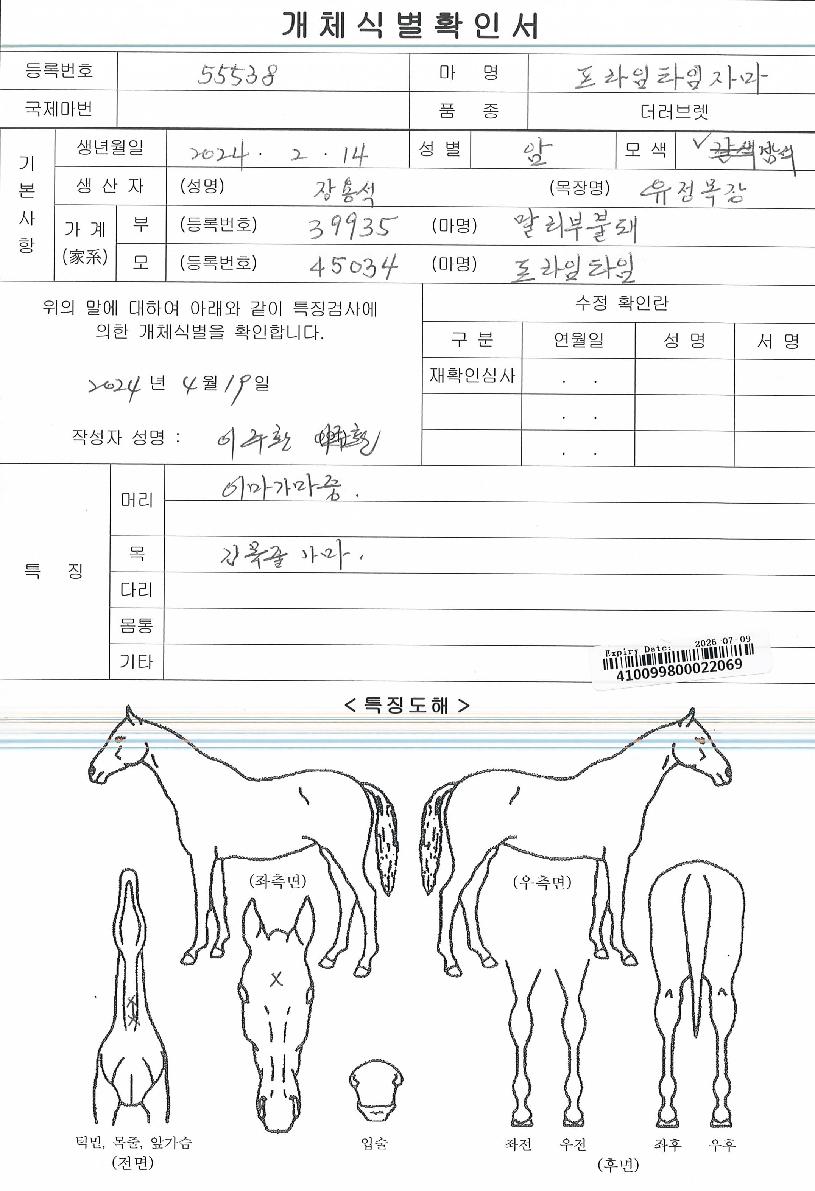 개체식별확인서
등록번호 55538 마 명 프라임타임자마
국제마번 품 종 더러브렛
기본사항
생년월일 2024 . 2 . 14 성 별 암 모 색
생 산 자 (성명) 장용석 (목장명) 유정목장
가 계 (家系) 부 (등록번호) 39935 (마명) 말리부불돼
모 (등록번호) 45034 (마명) 프라임타임
위의 말에 대하여 아래와 같이 특징검사에
의한 개체식별을 확인합니다.
2024 년 4 월 19 일
작성자 성명 : 이주환
수정 확인란
구 분 연월일 성 명 서 명
재확인심사 . .
. .
. .
특 징
머리 이마가마중.
목
다리
몸통
기타
Expiry Date: 2026-07-09
410099800022069
< 특징도해 >
(좌측면) (우측면)
턱밑, 목줄, 앞가슴
(전면)
입술
좌전 우전 좌후 우후
(후면)